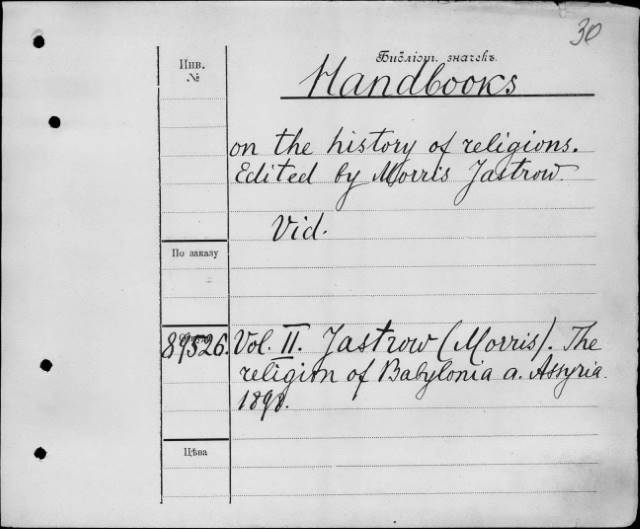 30
Библіот. значекъ.
Инв.
№
Handbooks
on the history of religions.
Edited by Morris Jastrow.
Vid.
По заказу
89526. Vol. II. Jastrow (Morris). The
religion of Babylonia a. Assyria.
1898.
Цѣна